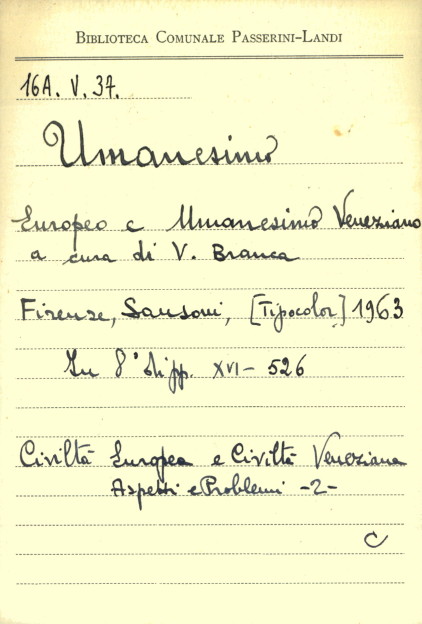 BIBLIOTECA COMUNALE PASSERINI-LANDI
16A. V. 37.
Umanesimo
Europeo e Umanesimo Veneziano
a cura di V. Branca
Firenze, Sansoni, [Tipocolor] 1963
In 8° di pp. XVI - 526
Civiltà Europea e Civiltà Veneziana
Aspetti e Problemi - 2 -
C